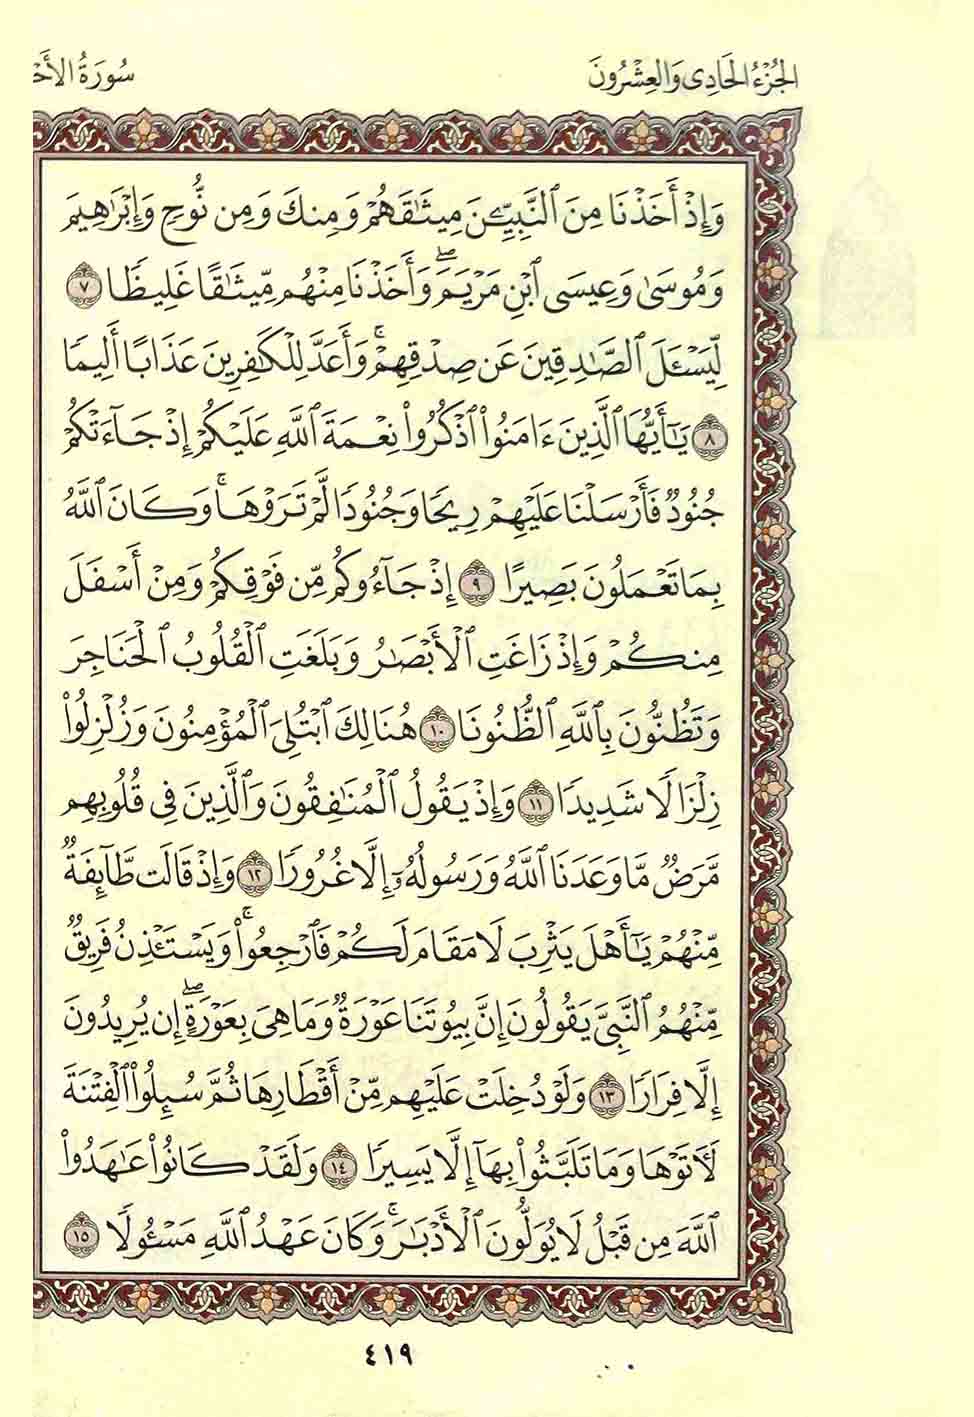 الجُزْءُ الحَادِى وَالعِشْرُونَ سُورَةُ الأَحْ
وَإِذْ أَخَذْنَا مِنَ ٱلنَّبِيِّـۧنَ مِيثَٰقَهُمْ وَمِنكَ وَمِن نُّوحٍ وَإِبْرَٰهِيمَ
وَمُوسَىٰ وَعِيسَى ٱبْنِ مَرْيَمَۖ وَأَخَذْنَا مِنْهُم مِّيثَٰقًا غَلِيظًا ٧
لِّيَسْـَٔلَ ٱلصَّٰدِقِينَ عَن صِدْقِهِمْۚ وَأَعَدَّ لِلْكَٰفِرِينَ عَذَابًا أَلِيمًا
٨ يَٰٓأَيُّهَا ٱلَّذِينَ ءَامَنُوا۟ ٱذْكُرُوا۟ نِعْمَةَ ٱللَّهِ عَلَيْكُمْ إِذْ جَآءَتْكُمْ
جُنُودٌ فَأَرْسَلْنَا عَلَيْهِمْ رِيحًا وَجُنُودًا لَّمْ تَرَوْهَاۚ وَكَانَ ٱللَّهُ
بِمَا تَعْمَلُونَ بَصِيرًا ٩ إِذْ جَآءُوكُم مِّن فَوْقِكُمْ وَمِنْ أَسْفَلَ
مِنكُمْ وَإِذْ زَاغَتِ ٱلْأَبْصَٰرُ وَبَلَغَتِ ٱلْقُلُوبُ ٱلْحَنَاجِرَ
وَتَظُنُّونَ بِٱللَّهِ ٱلظُّنُونَا۠ ١٠ هُنَالِكَ ٱبْتُلِىَ ٱلْمُؤْمِنُونَ وَزُلْزِلُوا۟
زِلْزَالًا شَدِيدًا ١١ وَإِذْ يَقُولُ ٱلْمُنَٰفِقُونَ وَٱلَّذِينَ فِى قُلُوبِهِم
مَّرَضٌ مَّا وَعَدَنَا ٱللَّهُ وَرَسُولُهُۥٓ إِلَّا غُرُورًا ١٢ وَإِذْ قَالَت طَّآئِفَةٌ
مِّنْهُمْ يَٰٓأَهْلَ يَثْرِبَ لَا مُقَامَ لَكُمْ فَٱرْجِعُوا۟ۚ وَيَسْتَـْٔذِنُ فَرِيقٌ
مِّنْهُمُ ٱلنَّبِىَّ يَقُولُونَ إِنَّ بُيُوتَنَا عَوْرَةٌ وَمَا هِىَ بِعَوْرَةٍۖ إِن يُرِيدُونَ
إِلَّا فِرَارًا ١٣ وَلَوْ دُخِلَتْ عَلَيْهِم مِّنْ أَقْطَارِهَا ثُمَّ سُئِلُوا۟ ٱلْفِتْنَةَ
لَـَٔاتَوْهَا وَمَا تَلَبَّثُوا۟ بِهَآ إِلَّا يَسِيرًا ١٤ وَلَقَدْ كَانُوا۟ عَٰهَدُوا۟
ٱللَّهَ مِن قَبْلُ لَا يُوَلُّونَ ٱلْأَدْبَٰرَۚ وَكَانَ عَهْدُ ٱللَّهِ مَسْـُٔولًا ١٥
٤١٩